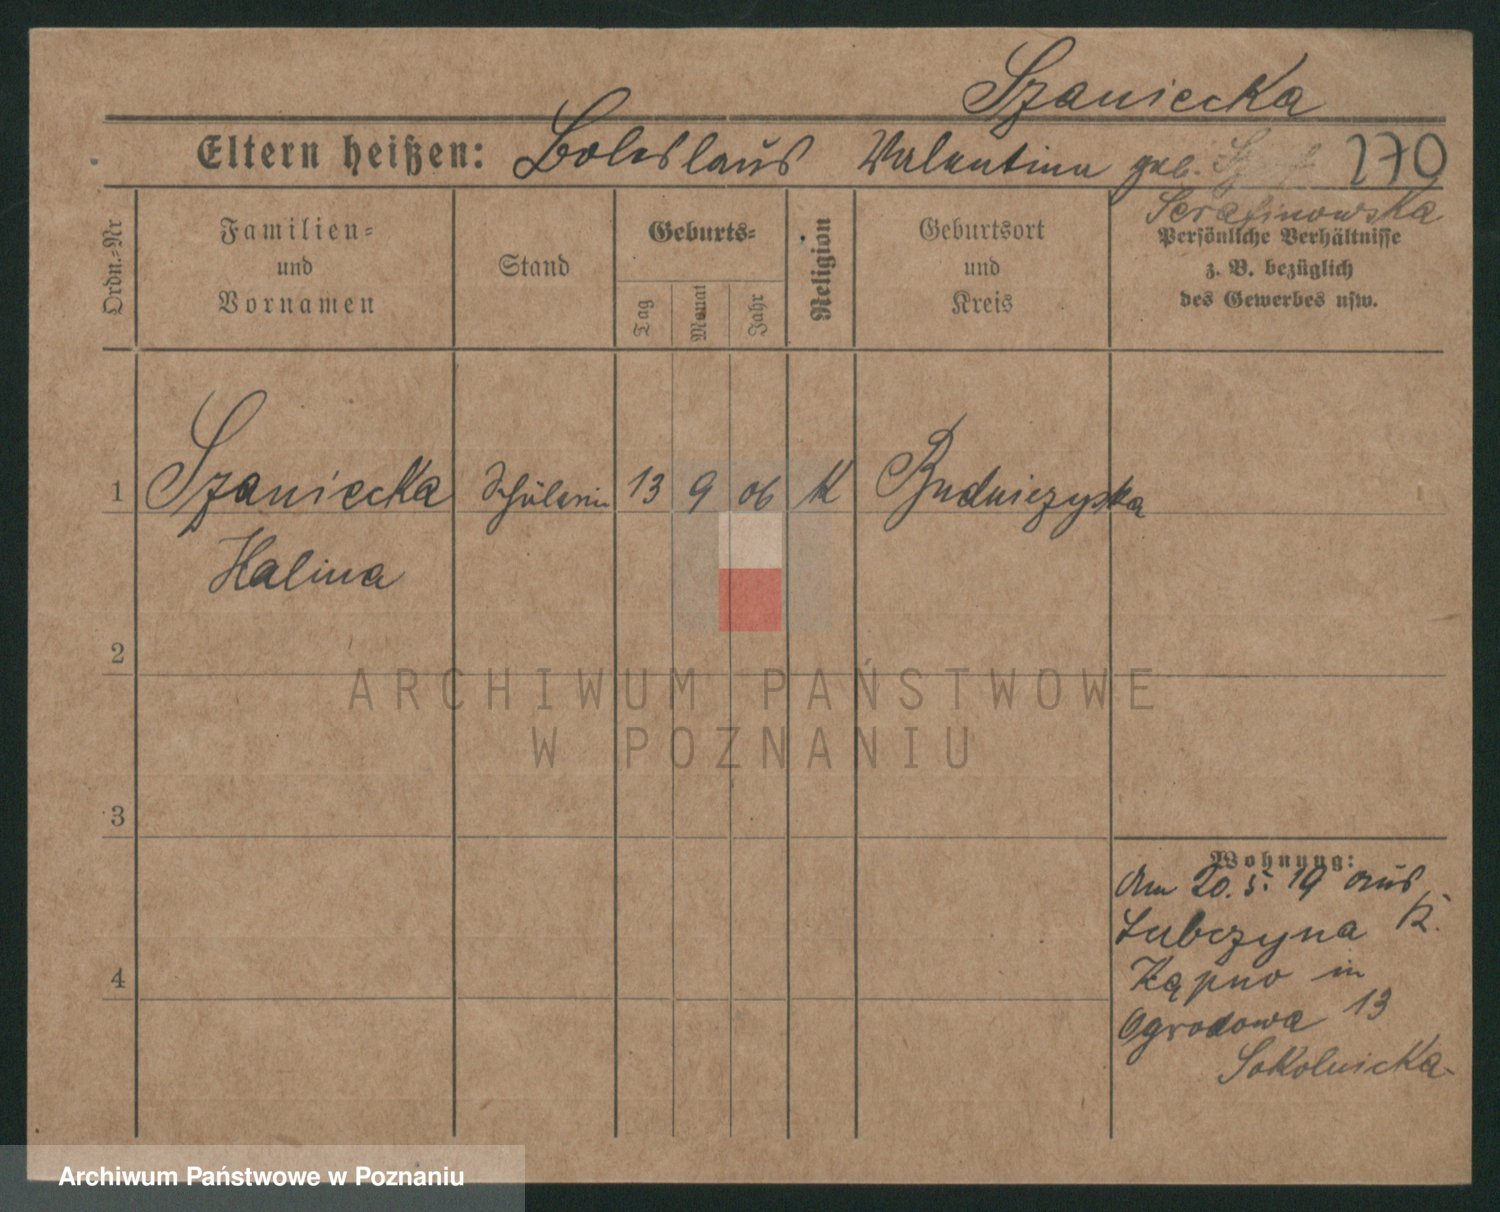 Szaniecka
Eltern heißen: Boleslaus Valentina geb. 270
Serafinowska
Ordn.-Nr
Familien-
und
Vornamen
Stand
Geburts-
Tag
Monat
Jahr
Religion
Geburtsort
und
Kreis
Persönliche Verhältnisse
z. B. bezüglich
des Gewerbes usw.
1 Szaniecka Schülerin 13 9 06 K
Halina
2
ARCHIWUM PAŃSTWOWE
W POZNANIU
3
4
Wohnung:
Am 20. 5. 19 aus
Lubczyna K.
Kąpno in
Ogrodowa 13
Sokolnicka
Archiwum Państwowe w Poznaniu